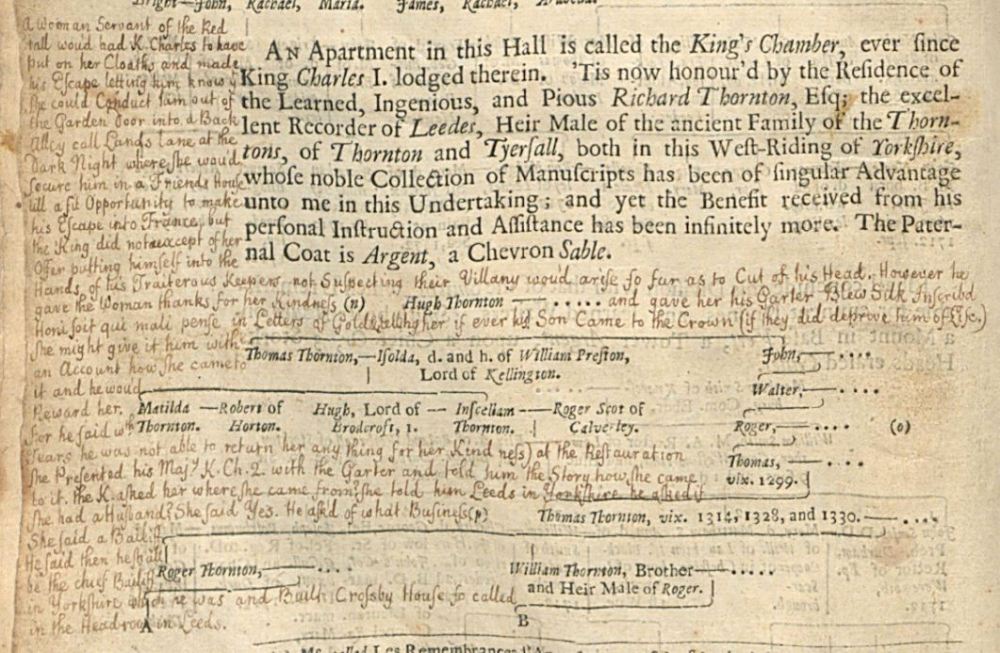 Bright—John, Rachael, Maria. James, Rachael,
AN Apartment in this Hall is called the King's Chamber, ever since
King Charles I. lodged therein. 'Tis now honour'd by the Residence of
the Learned, Ingenious, and Pious Richard Thornton, Esq; the excel-
lent Recorder of Leedes, Heir Male of the ancient Family of the Thorn-
tons, of Thornton and Tyersall, both in this West-Riding of Yorkshire,
whose noble Collection of Manuscripts has been of singular Advantage
unto me in this Undertaking; and yet the Benefit received from his
personal Instruction and Assistance has been infinitely more. The Pater-
nal Coat is Argent, a Chevron Sable.
a Woman Servant of the Red
Hall woud had K. Charles to have
put on her Cloaths and made
his Escape letting him know
she could Conduct him out of
the Garden Door into a Back
Alley call Lands Lane at the
Dark Night where she woud
secure him in a Friends House
till a fit Opportunity to make
his Escape into France, but
the King did not accept of her
Offer putting himself into the
Hands of his Traiterous Keepers not Suspecting their Villany woud arise so far as to Cut of his Head. However he
gave the Woman thanks for her Kindness (n) Hugh Thornton —— ..... and gave her his Garter Blew Silk Inscribd
Honi soit qui mali pense in Letters of Gold telling her if ever his Son Came to the Crown (if they did deprive him of
she might give it him with
an Account how she came to
it and he woud
Reward her.
Thomas Thornton,—Isolda, d. and h. of William Preston,
Lord of Kellington.
John,—— ....
Walter,—— ....
Matilda —Robert of Hugh, Lord of — Insceliam —Roger Scot of
Thornton. Horton. Brodcroft, 1. Thornton. Calverley.
Roger,—— .... (o)
for he said wth
Tears he was not able to return her any thing for her Kindness) at the Restauration
Thomas, —— ....
vix. 1299.
she Presented his Majy K. Ch. 2. with the Garter and told him the Story how she came
to it. the K. asked her where she came from? she told him Leeds in Yorkshire he asked if
she had a Husband? She said Yes. He askd of what Business (p)
Thomas Thornton, vix. 1314, 1328, and 1330.—— ....
She said a Bailiff.
He said then he shall
be the chief Bailiff
Roger Thornton,—— .... William Thornton, Brother—— .....
and Heir Male of Roger.
in Yorkshire which he was and Built Crossby House so called
in the Headrow in Leeds.
A B
called Les Remembrances